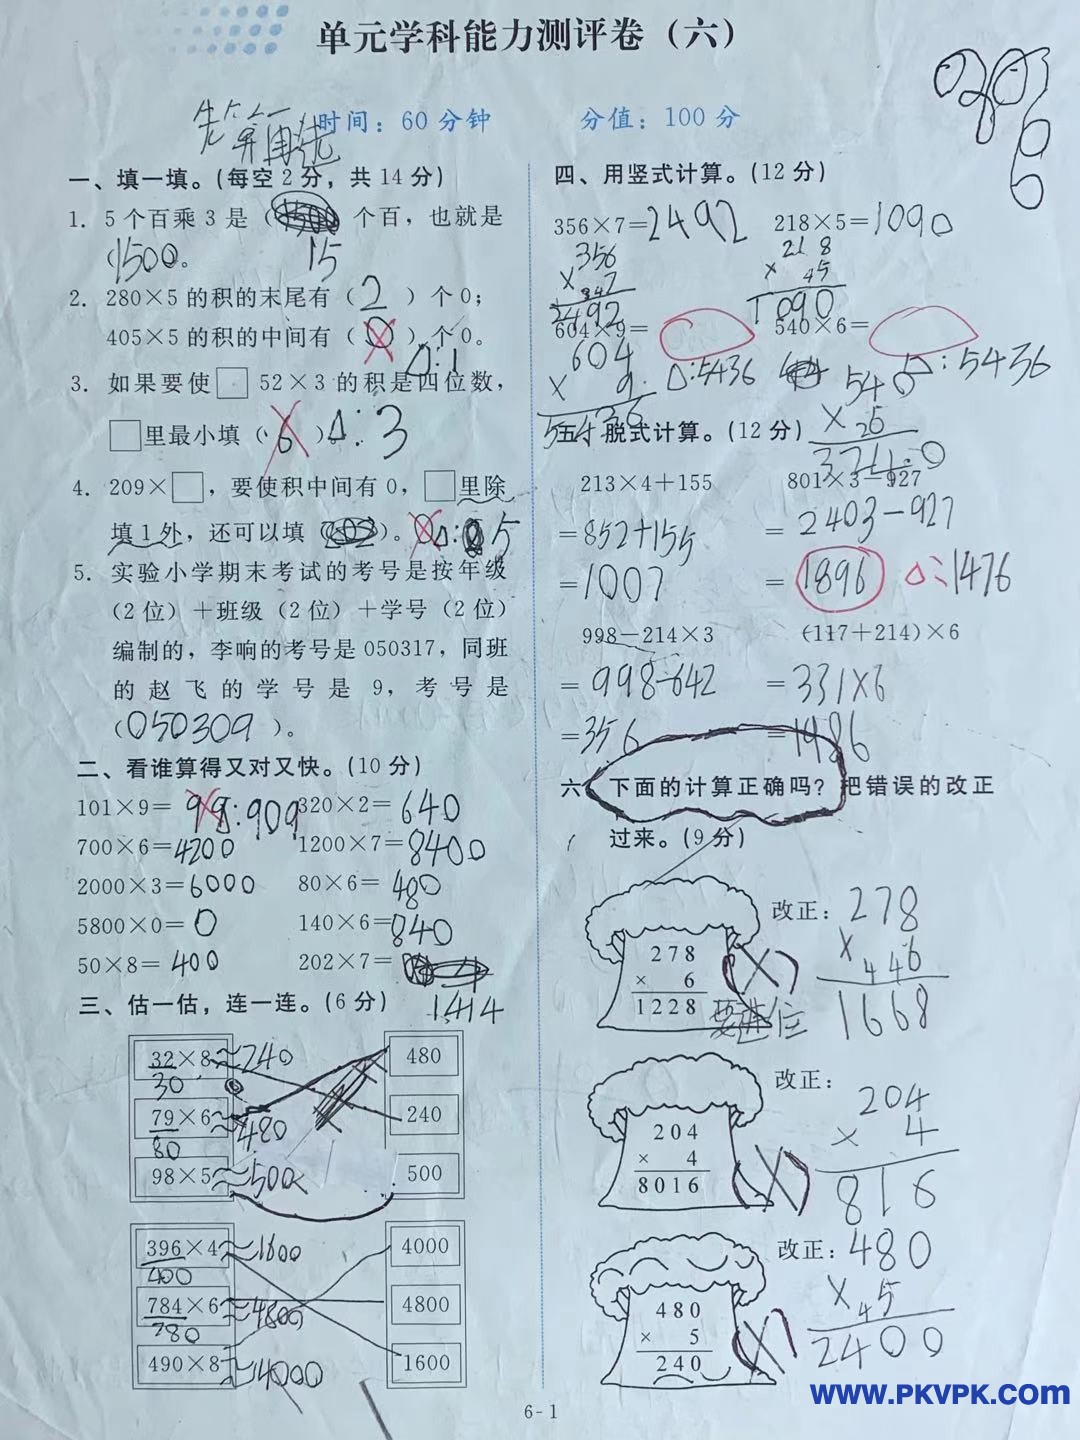 单元学科能力测评卷（六）
先算再填
时间：60分钟 分值：100分
一、填一填。（每空2分，共14分）
1. 5个百乘3是（ ）个百，也就是
15
（1500。
2. 280×5的积的末尾有（2）个0；
405×5的积的中间有（0）个0。
△:1
3. 如果要使□52×3的积是四位数，
□里最小填（6）△:3
4. 209×□，要使积中间有0，□里除
填1外，还可以填（ ）。 △: 5
5. 实验小学期末考试的考号是按年级
（2位）＋班级（2位）＋学号（2位）
编制的，李响的考号是050317，同班
的赵飞的学号是9，考号是
（050309）。
二、看谁算得又对又快。（10分）
101×9= 99 △:909 320×2=640
700×6=4200 1200×7=8400
2000×3=6000 80×6=480
5800×0=0 140×6=840
50×8=400 202×7=
1414
三、估一估，连一连。（6分）
32×8≈240 480
30
79×6≈480 240
80
98×5≈500 500
396×4≈1600 4000
400
784×6≈4800 4800
780
490×8≈14000 1600
四、用竖式计算。（12分）
356×7=2492 218×5=1090
356 218
×7 ×45
2492 1090
604×9= 540×6=
604 △:5436 540 △:5436
×9
5436
五、脱式计算。（12分）
213×4+155 801×3−927
=852+155 =2403−927
=1007 =1896 △:1476
998−214×3 （117+214）×6
=998-642 =331×6
=356 =1986
六、下面的计算正确吗？把错误的改正
过来。（9分）
278
× 6
1228
(×)
要进位
改正：278
×446
1668
204
× 4
8016
(×)
改正：
204
× 4
816
480
× 5
240
(×)
改正：480
×45
2400
6-1
www.PKVPK.com